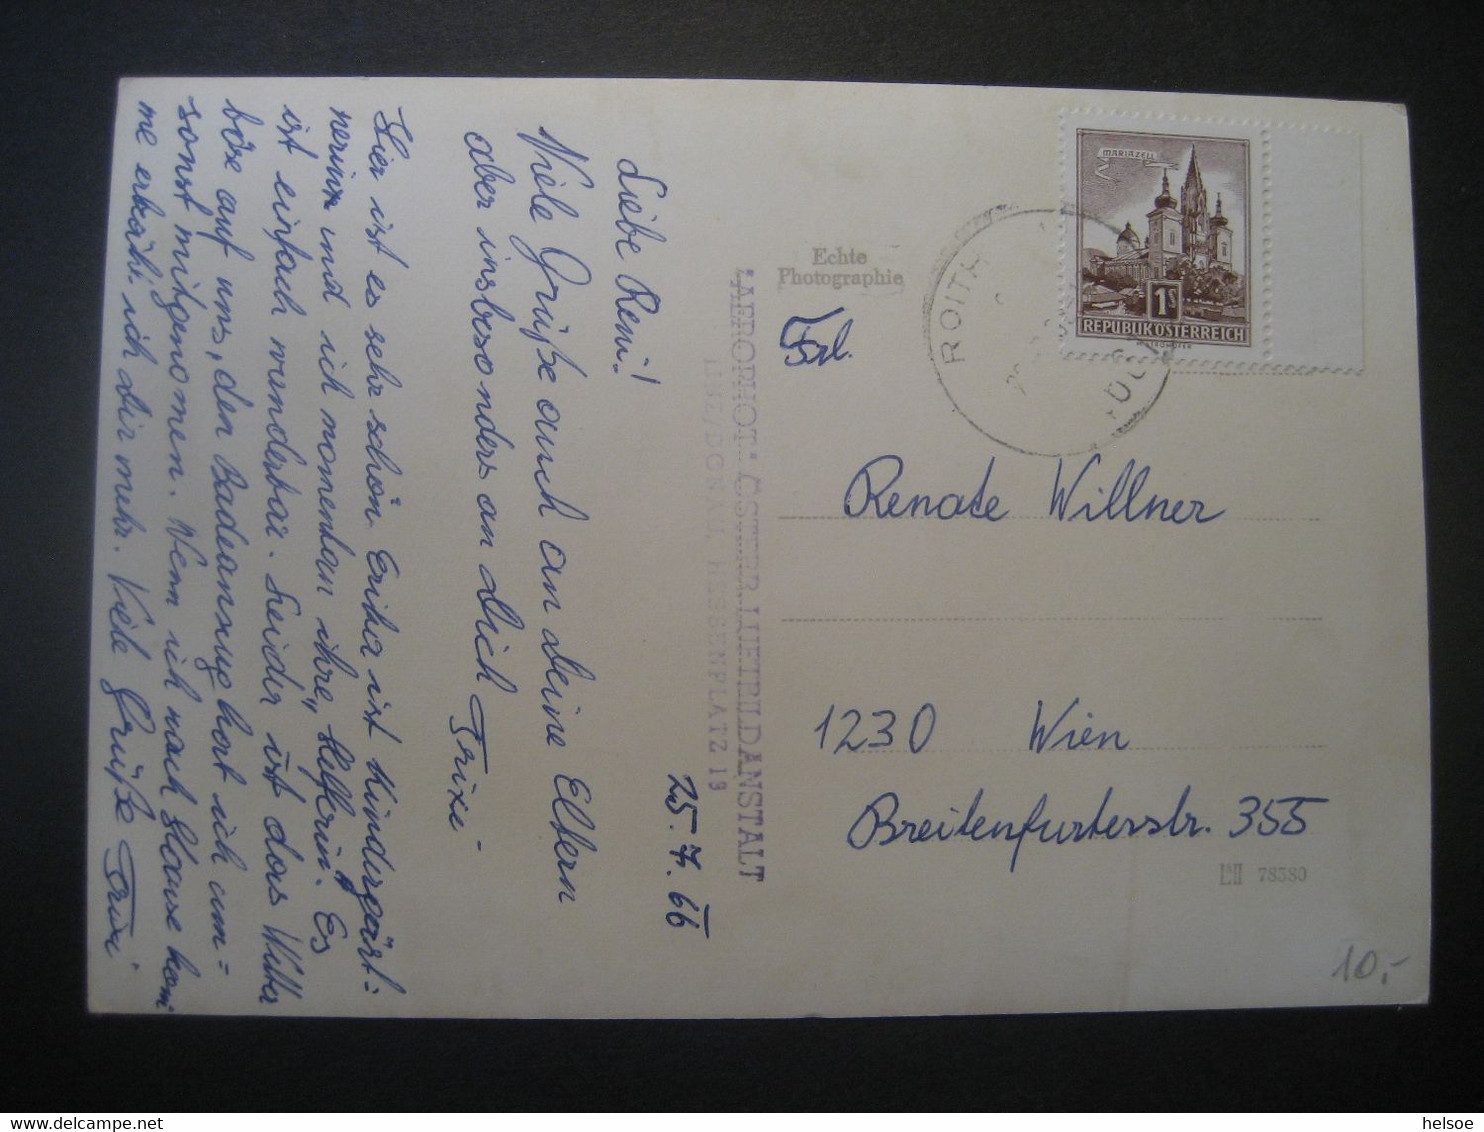 25. 7. 66
Liebe Reni!
Viele Grüße auch an deine Eltern
aber insbesonders an dich Trixi.
Hier ist es sehr schön Erika ist Kindergärt=
nerin und ich momentan ihre „Helferin". Es
ist einfach wunderbar. Leider ist das Wetter
böse auf uns, den Badeanzug hort ich um=
sonst mitgenomen. Wenn ich nach Hause kom
me erzähl ich dir mehr. Viele Grüße Trixi
Echte
Photographie
"AEROPHOT" ÖSTERR. LUFTBILDANSTALT
LINZ/DONAU, HESSENPLATZ 19
MARIAZELL
1S
REPUBLIK ÖSTERREICH
ROITH
Frl.
Renate Willner
1230 Wien
Breitenfurterstr. 355
78580
10,-
helsoe